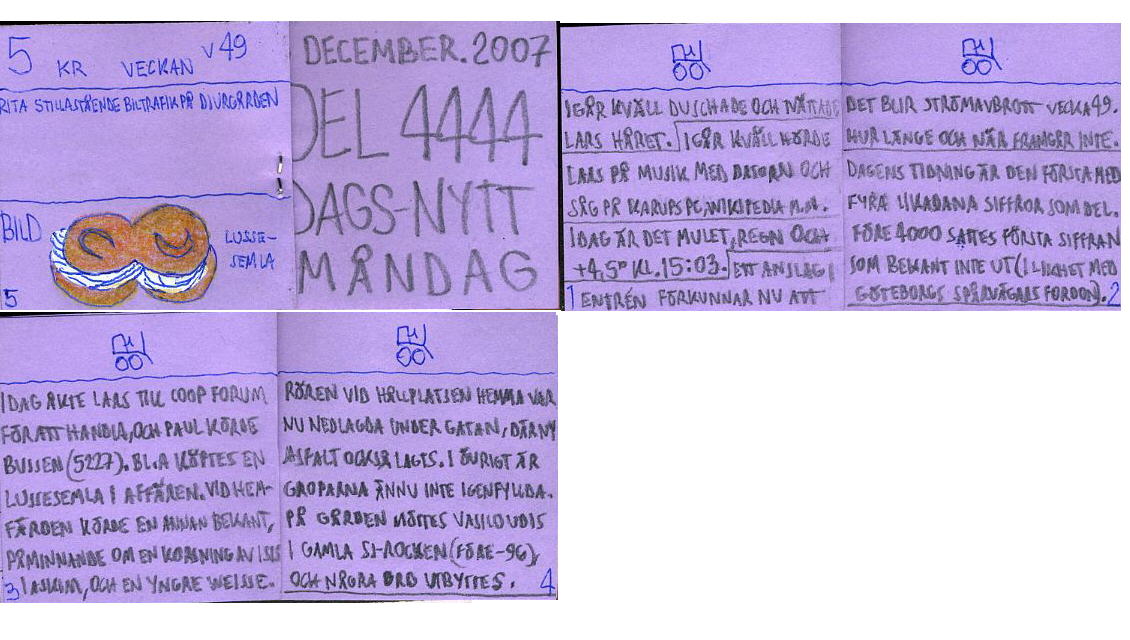 5 KR VECKAN V 49
RITA STILLASTÅENDE BILTRAFIK PÅ DJURGÅRDEN
BILD
LUSSE-
SEMLA
5
DECEMBER.2007
DEL 4444
DAGS-NYTT
MÅNDAG
IGÅR KVÄLL DUSCHADE OCH
LARS HÅRET. IGÅR KVÄLL HÖRDE
LARS PÅ MUSIK MED DATORN OCH
SÅG PÅ KARUPS PC, WIKIPEDIA M.M.
IDAG ÄR DET MULET, REGN OCH
+4,5° KL.15:03. ETT ANSLAG I
1 ENTRÉN FÖRKUNNAR NU ATT
DET BLIR STRÖMAVBROTT VECKA 49.
HUR LÄNGE OCH NÄR FRAMGÅR INTE.
DAGENS TIDNING ÄR DEN FÖRSTA MED
FYRA LIKADANA SIFFROR SOM DEL.
FÖRE 4000 SATTES FÖRSTA SIFFRAN
SOM BEKANT INTE UT (I LIKHET MED
GÖTEBORGS SPÅRVÄGARS FORDON). 2
IDAG ÅKTE LARS TILL COOP FORUM
FÖR ATT HANDLA, OCH PAUL KÖRDE
BUSSEN (5227). BL.A KÖPTES EN
LUSSESEMLA I AFFÄREN. VID HEM-
FÄRDEN KÖRDE EN ANNAN BEKANT,
PÅMINNANDE OM EN KORSNING AV
3 I ASKIM, OCH EN YNGRE WEISSE.
RÖREN VID HÅLLPLATSEN HEMMA VAR
NU NEDLAGDA UNDER GATAN, DÄR NY
ASFALT OCKSÅ LAGTS. I ÖVRIGT ÄR
GROPARNA ÄNNU INTE IGENFYLLDA.
PÅ GÅRDEN MÖTTES VASILOUDIS
I GAMLA SJ-ROCKEN (FÖRE -96),
OCH NÅGRA ORD UTBYTTES. 4